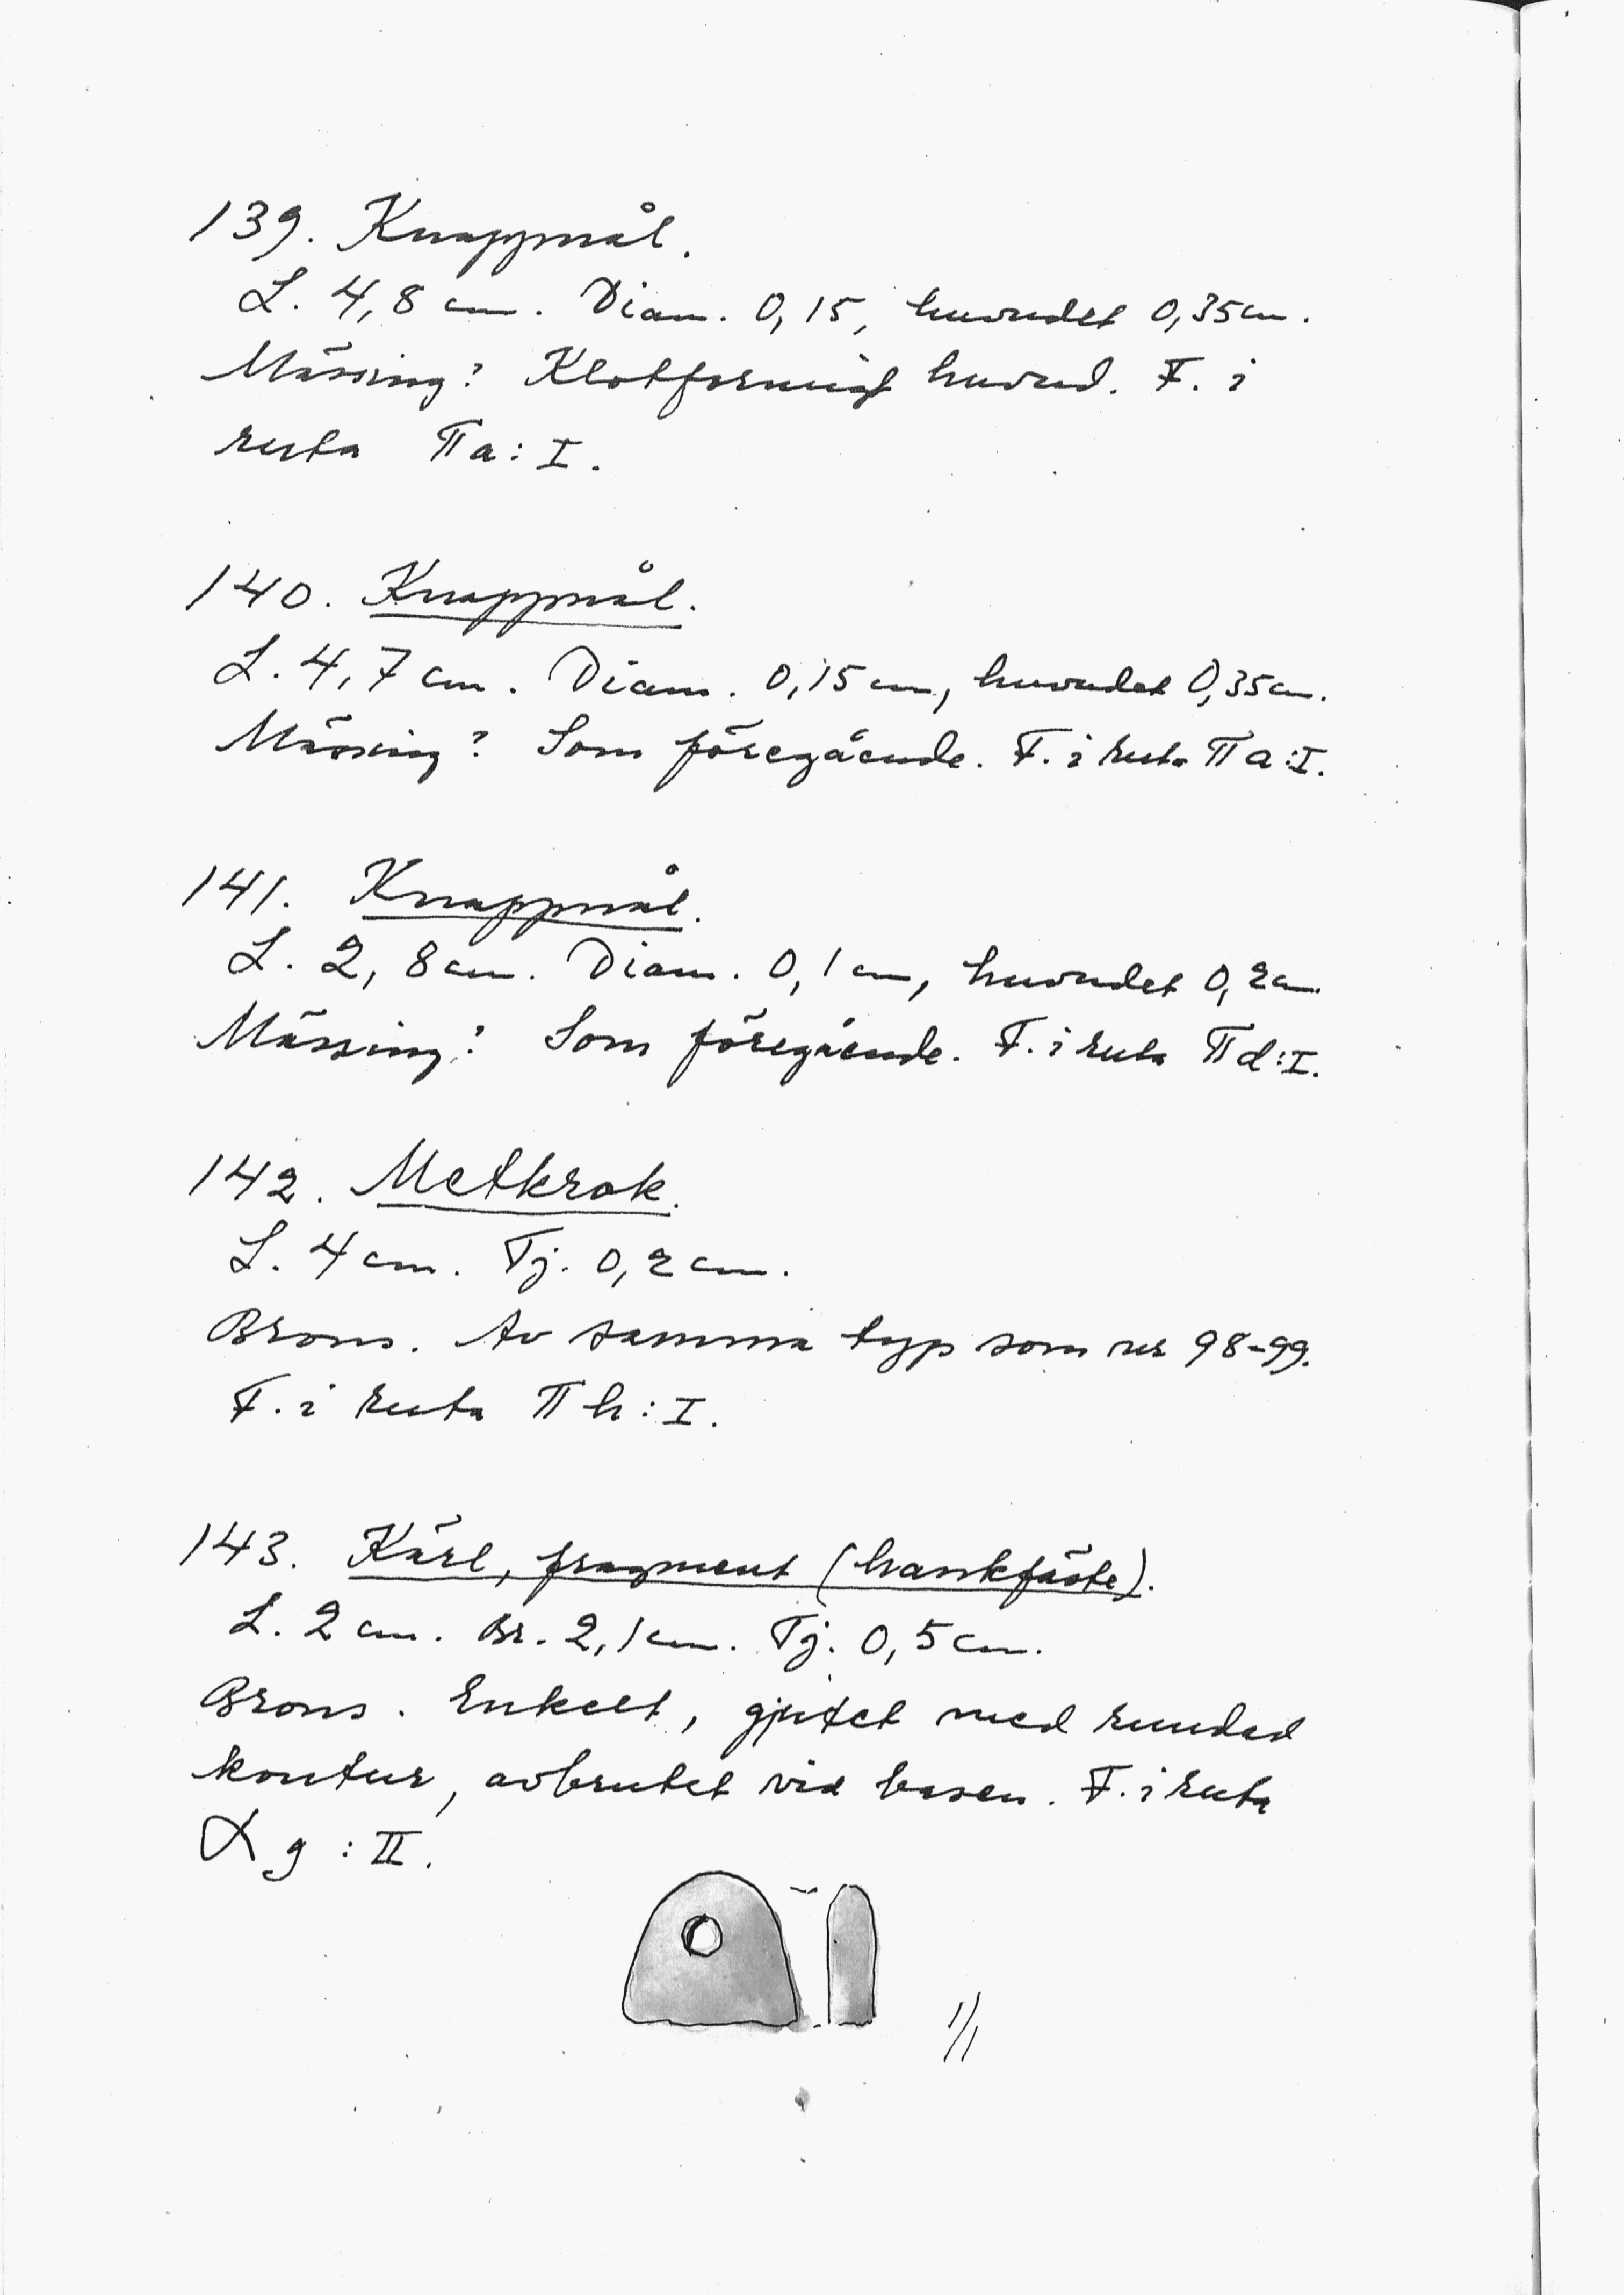 139. Knappnål.
L. 4,8 cm. Diam. 0,15, huvudet 0,35 cm.
Mässing? Klotformigt huvud. F. i
ruta Π a : I.
140. Knappnål.
L. 4,7 cm. Diam. 0,15 cm, huvudet 0,35 cm.
Mässing? Som föregående. F. i ruta Π a : I.
141. Knappnål.
L. 2,8 cm. Diam. 0,1 cm, huvudet 0,2 cm.
Mässing? Som föregående. F. i ruta Π d : I.
142. Metkrok.
L. 4 cm. Tj. 0,2 cm.
Brons. Av samma typ som nr 98-99.
F. i ruta Π h : I.
143. Kärl, fragment (hankfäste).
L. 2 cm. Br. 2,1 cm. Tj. 0,5 cm.
Brons. Enkelt, gjutet med rundad
kontur, avbrutet vid basen. F. i ruta
α g : II.
1/1